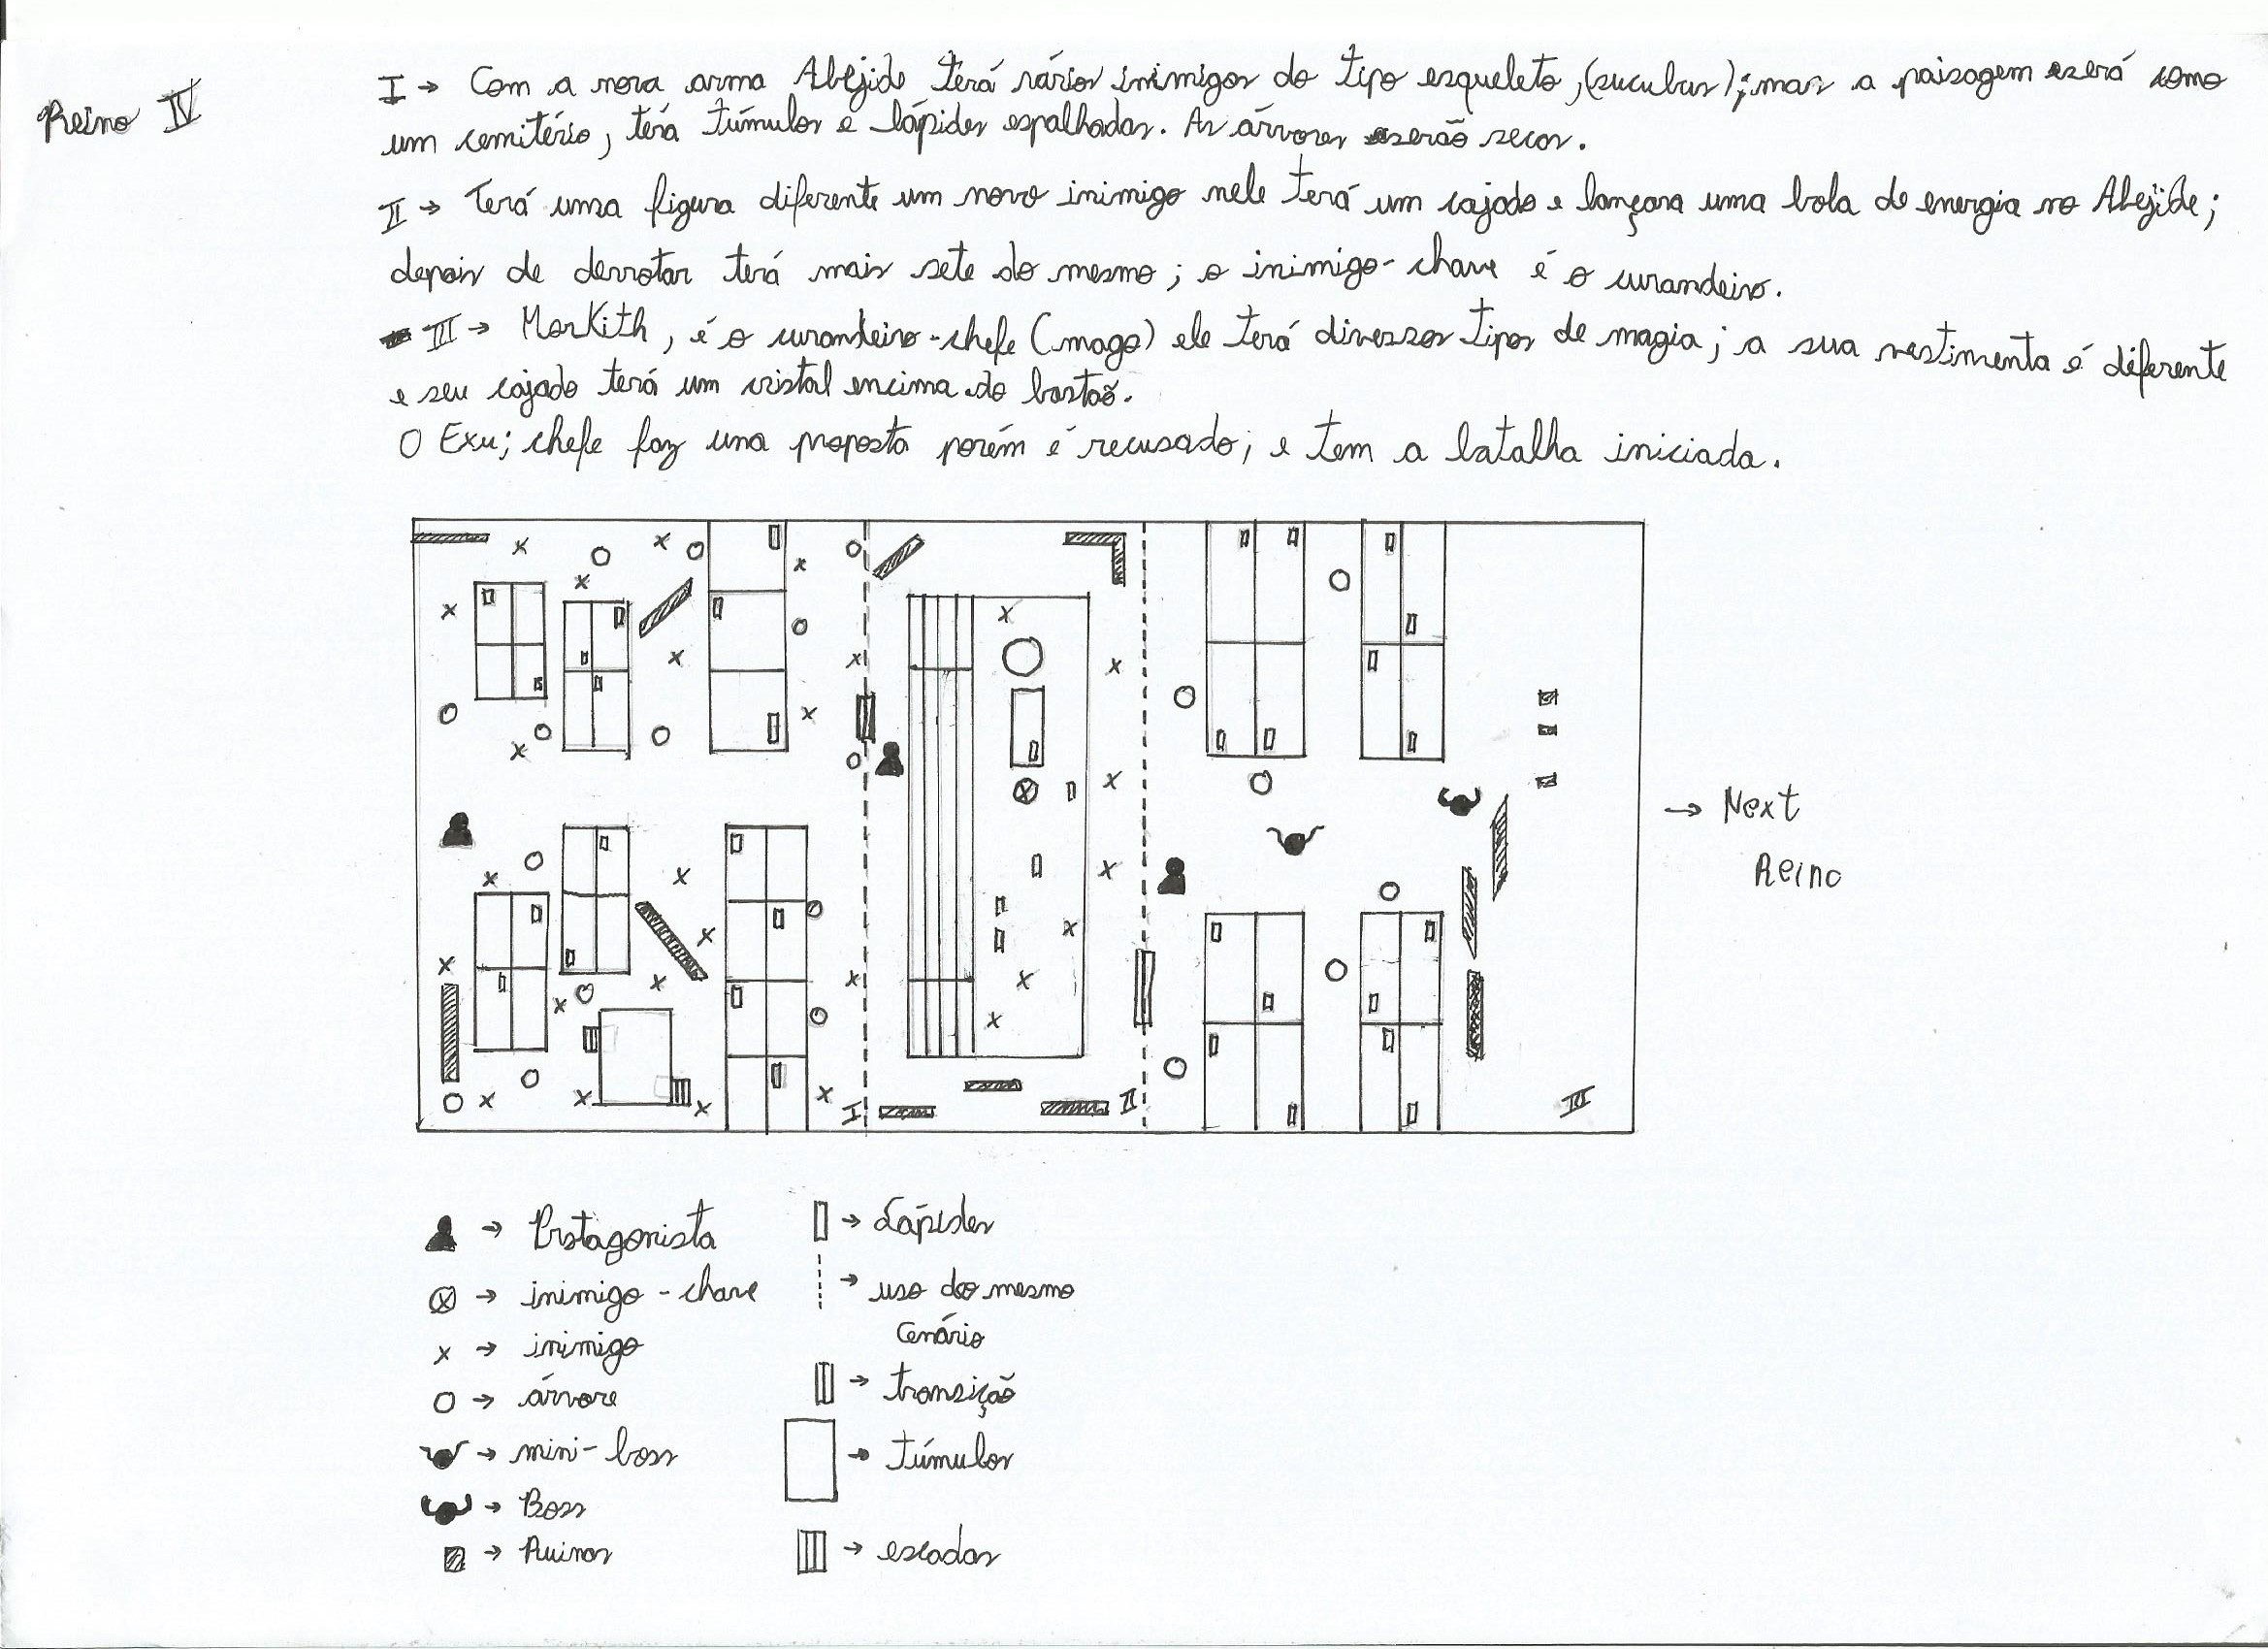 Reino IV
I → Com a nova arma Abejide terá vários inimigos do tipo esqueleto, (sucubus); mas a paisagem será como
um cemitério, terá túmulos e lápides espalhadas. As árvores serão secas.
II → Terá uma figura diferente um novo inimigo nele terá um cajado e lançara uma bola de energia no Abejide;
depois de derrotar terá mais sete do mesmo; o inimigo-chave é o curandeiro.
III → Markith, é o curandeiro-chefe (mago) ele terá diversos tipos de magia; a sua vestimenta é diferente
e seu cajado terá um cristal encima do bastão.
O Exu; chefe faz uma proposta porém é recusado; e tem a batalha iniciada.
→ Next
Reino
I
II
III
→ Protagonista
→ inimigo-chave
x → inimigo
→ árvore
→ mini-boss
→ Boss
→ Ruinas
→ Lápides
→ uso do mesmo
Cenário
→ transição
→ túmulos
→ escadas